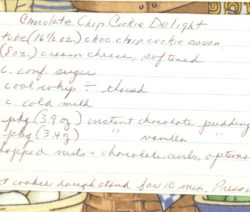 Chocolate Chip Cookie Delight
tube (16½ oz.) choc chip cookie dough
(8 oz.) cream cheese, softened
c. conf. sugar
cool whip ÷ thawed
c. cold milk
pkg (3.9 oz) instant chocolate pudding
pkg (3.4 oz) " vanilla "
hopped nuts + chocolate curls, optiona
t cookie dough stand for 10 min. Press